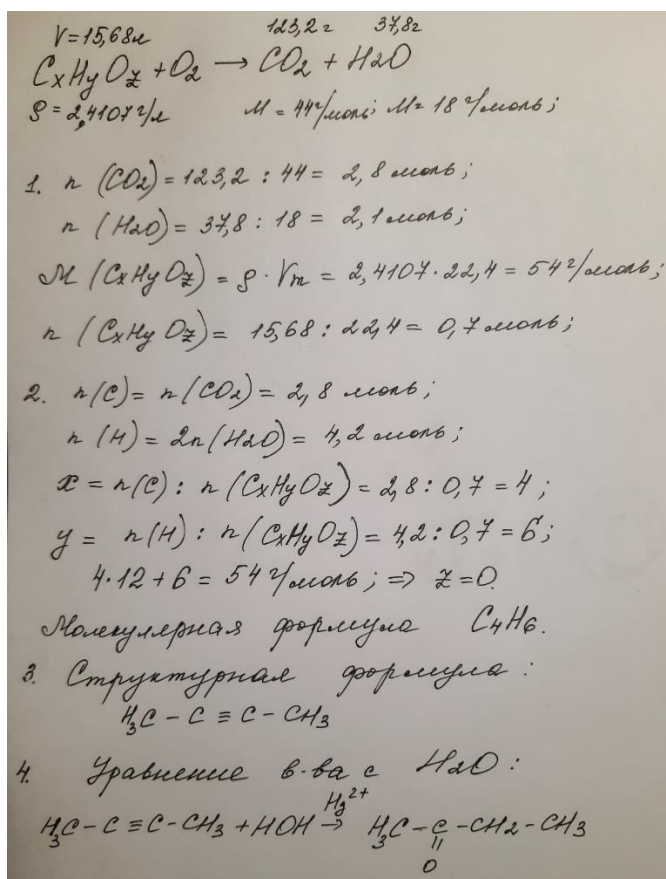 V=15,68л 123,2г 37,8г
CxHyOz + O2 → CO2 + H2O
ρ = 2,4107 г/л M = 44 г/моль; M = 18 г/моль;
1. n (CO2) = 123,2 : 44 = 2,8 моль;
n (H2O) = 37,8 : 18 = 2,1 моль;
M (CxHyOz) = ρ · Vm = 2,4107 · 22,4 = 54 г/моль;
n (CxHyOz) = 15,68 : 22,4 = 0,7 моль;
2. n(C) = n(CO2) = 2,8 моль;
n (H) = 2n(H2O) = 4,2 моль;
x = n(C) : n (CxHyOz) = 2,8 : 0,7 = 4;
y = n(H) : n (CxHyOz) = 4,2 : 0,7 = 6;
4·12 + 6 = 54 г/моль; => z = 0.
Молекулярная формула C4H6.
3. Структурная формула :
H3C – C ≡ C – CH3
4. Уравнение в-ва с H2O :
Hg2+
H3C – C ≡ C – CH3 + HOH → H3C – C – CH2 – CH3
||
O